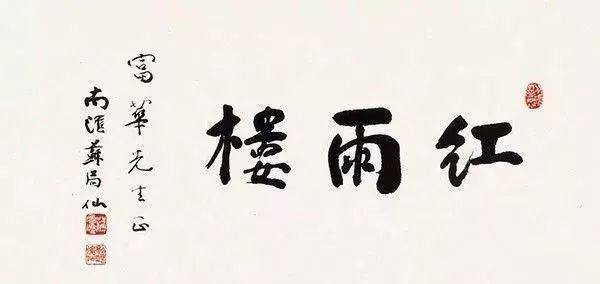 红雨樓
富華先生正
南滙蘇局仙